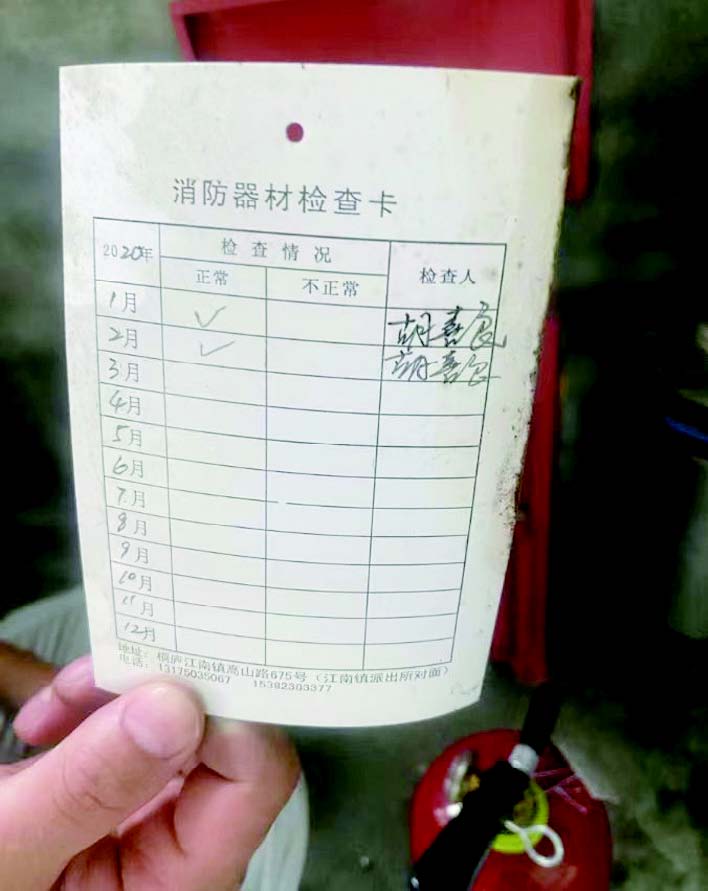 消防器材检查卡
2020年 检查情况 检查人
正常 不正常
1月 ✓ 胡喜良
2月 ✓ 胡喜良
3月
4月
5月
6月
7月
8月
9月
10月
11月
12月
地址：桐庐江南镇高山路675号（江南镇派出所对面）
电话：13175035067 15382303377